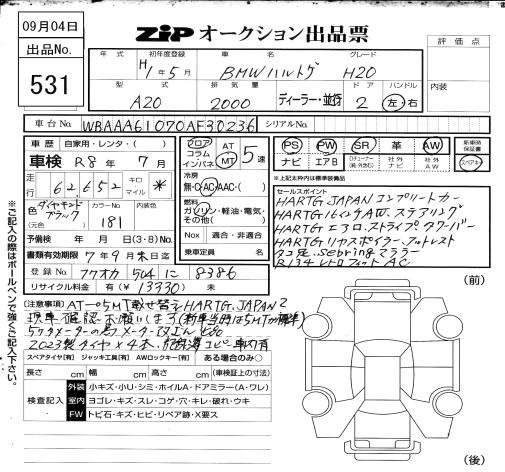 09月04日
出品No.
531
ZiP オークション出品票
評価点
内装
年式 初年度登録 車名 グレード
H1年5月 BMWハルトゲ H20
型式 排気量 ドア ハンドル
A20 2000 ディーラー・並行 2 左・右
車台No. WBAAA61070AF30236 シリアルNo.
車歴 自家用・レンタ・( )
車検 R8年7月
走行 62,652 キロ マイル *
色 ダイヤモンドブラック (元色) カラーNo. 181 内装色
予備検 年 月 日(3・8)No.
書類有効期限 7年9月末日迄
登録No. フクオカ 504 に 8386
リサイクル料金 有(¥13330) 未
フロア コラム インパネ AT MT 5速
冷房
無・A/C・AAC・( )
燃料
ガソリン・軽油・電気・その他( )
Nox 適合・非適合
乗車定員 名
PS PW SR 革 AW
ナビ エアB 社外ナビ 社外AW
新車時保証書
スペアキー
※上記太枠内は標準装備品
セールスポイント
HARTG JAPAN コンプリートカー
HARTG 16インチAW. ステアリング
HARTG エアロ.ストライプ タワーバー
HARTG リヤスポイラー.フットレスト
タコ足. Sebringマフラー
R134 レトロフィット AC
※ご記入の際はボールペンで強くご記入下さい。
(注意事項) AT→5MT載せ替え HARTG.JAPANで
現車確認お願いします(新車当時は5MTが標準)
2023製タイヤ×4本.
スペアタイヤ[有] ジャッキ工具[有] AWロックキー[有] ある場合のみ○
長さ cm 幅 cm 高さ cm (車検証上の寸法)
検査記入
外装 小キズ・小U・シミ・ホイルA・ドアミラー(A・ワレ)
室内 ヨゴレ・キズ・スレ・コゲ・穴・キレ・破れ・ウキ
FW トビ石・キズ・ヒビ・リペア跡・X要ス
(前)
(後)